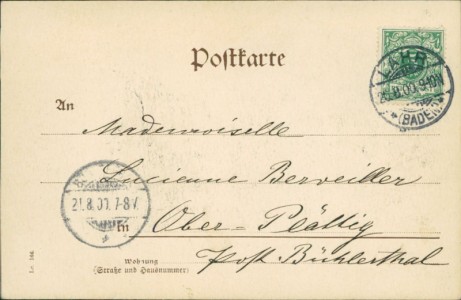 Postkarte
LAHR
21.8.00. 9-10N
* (BADEN)
An
Mademoiselle
Lucienne Berveiller
21.8.00. 7-8V
in Ober-Plättig
Post Bühlerthal
Wohnung
(Straße und Hausnummer)